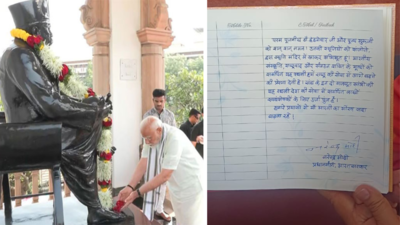 परम पूजनीय डॉ हेडगेवार जी और पूज्य गुरुजी
को शत् शत् नमन। उनकी स्मृतियों को संजोते
इस स्मृति मंदिर में आकर अभिभूत हूं। भारतीय
संस्कृति, राष्ट्रवाद और संगठन शक्ति के मूल्यों को
समर्पित यह स्थली हमें राष्ट्र की सेवा में आगे बढ़ने
की प्रेरणा देती है। संघ के इन दो मजबूत स्तंभों की
यह स्थली देश की सेवा में समर्पित लाखों
स्वयंसेवकों के लिए ऊर्जा पुंज है।
हमारे प्रयासों से मां भारती का गौरव सदा
बढ़ता रहे।
नरेन्द्र मोदी
प्रधानमंत्री, भारत सरकार